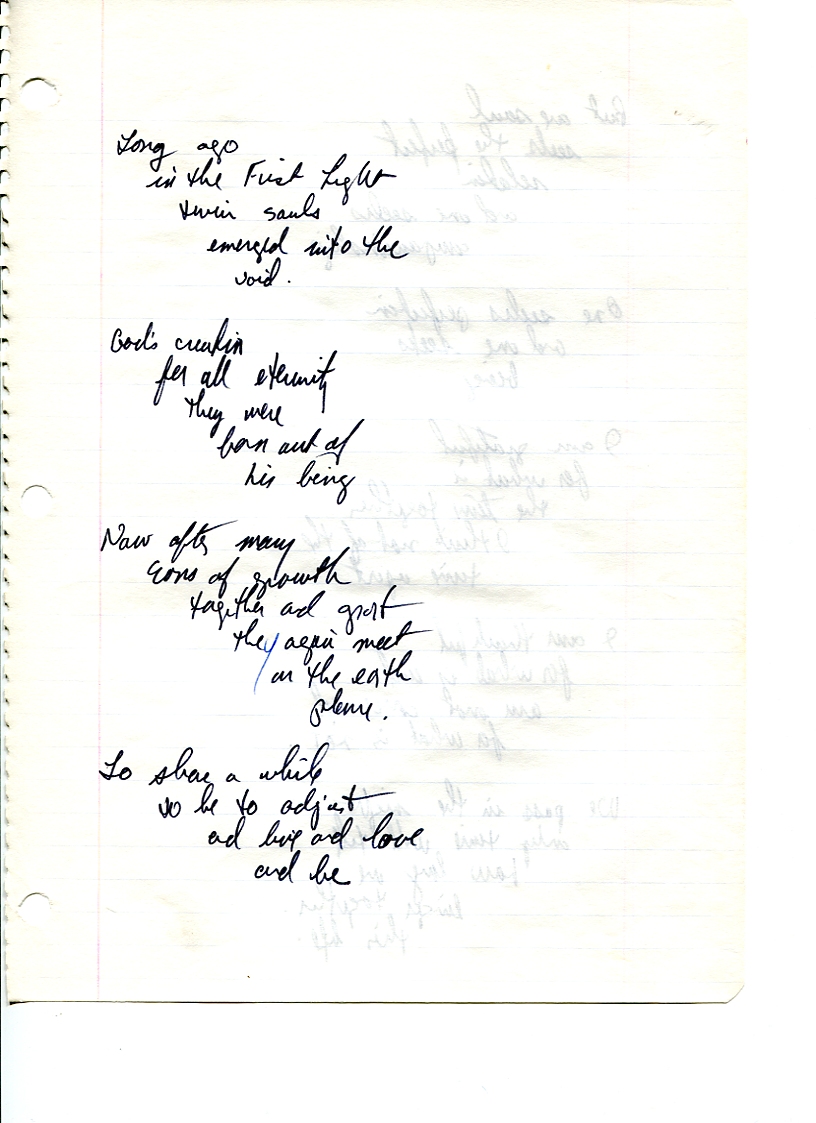 Long ago
in the First Light
twin souls
emerged into the
void.
God's creation
for all eternity
they were
born out of
his being
Now after many
Eons of growth
together and apart
they again meet
on the earth
plane.
To share a while
to be to adjust
and live and love
and be